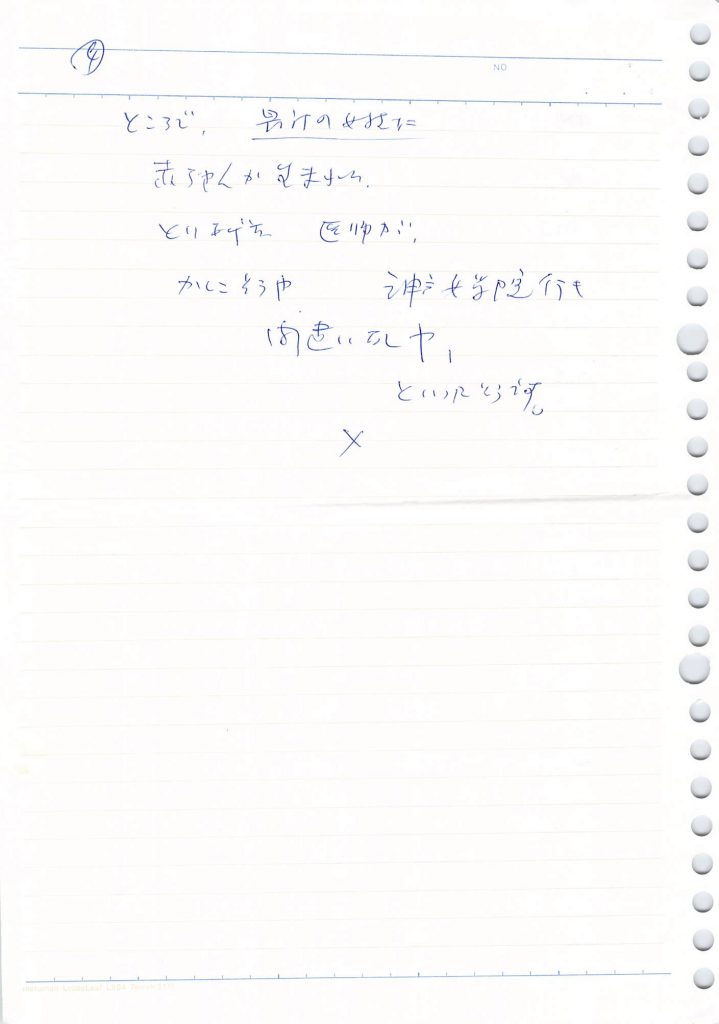 ④
NO
ところで、 の女性に
赤ちゃんが生まれ、
とりあげた 医師が、
かしこそうや 神戸女学院行き
間違いなしや、
といったそうです。
×